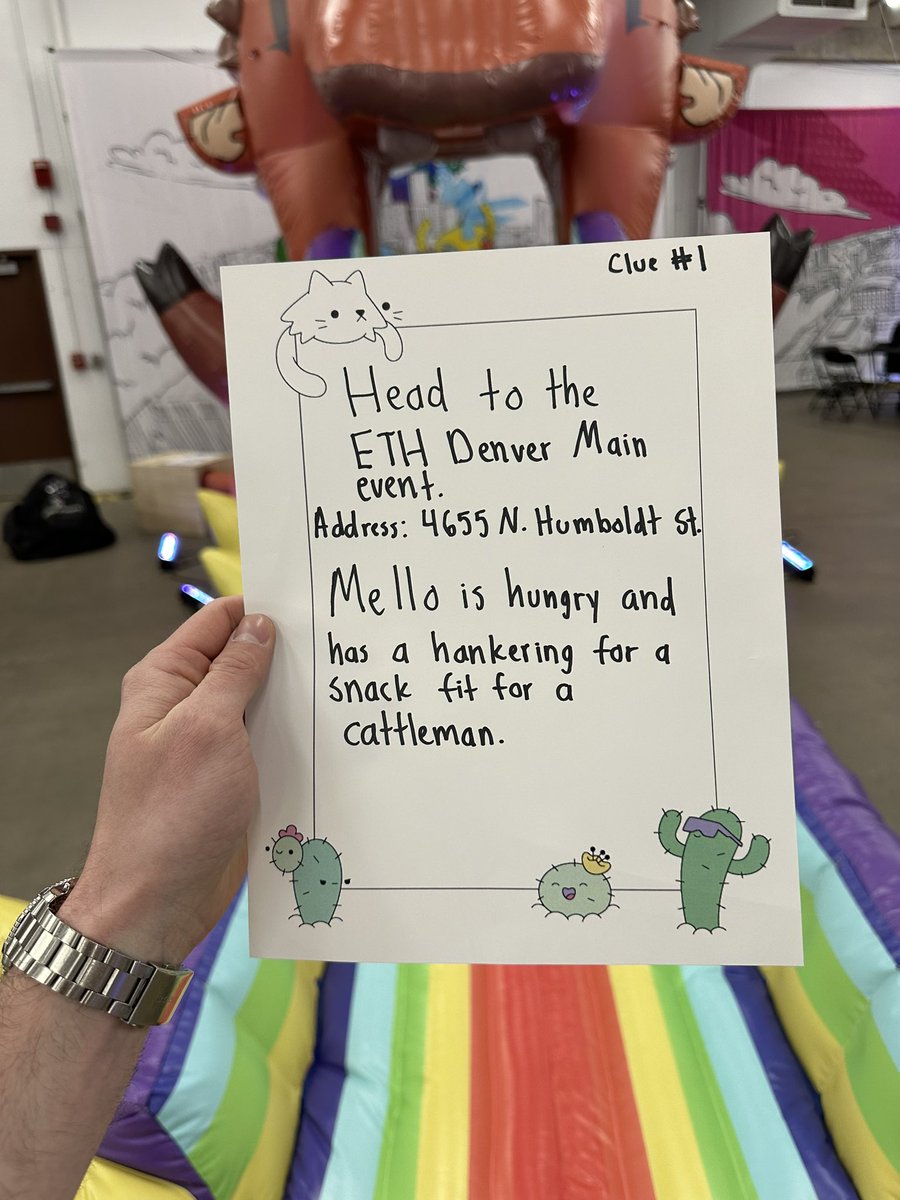 Clue #1
Head to the
ETH Denver Main
event.
Address: 4655 N. Humboldt St.
Mello is hungry and
has a hankering for a
snack fit for a
cattleman.